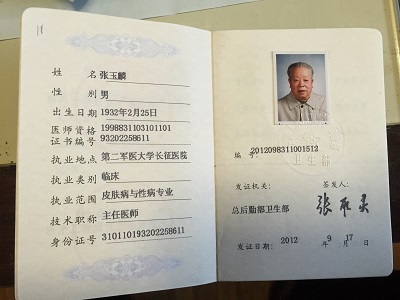 姓 名 张玉麟
性 别 男
出生日期 1932年2月25日
医师资格 199883110310​1101
证书编号 93202258611
执业地点 第二军医大学长征医院
执业类别 临床
执业范围 皮肤病与性病专业
技术职称 主任医师
身份证号 310110193202258611
编号: 2012098311001512
卫生部
发证机关: 签发人:
总后勤部卫生部
发证日期: 2012 年 9 月 17 日